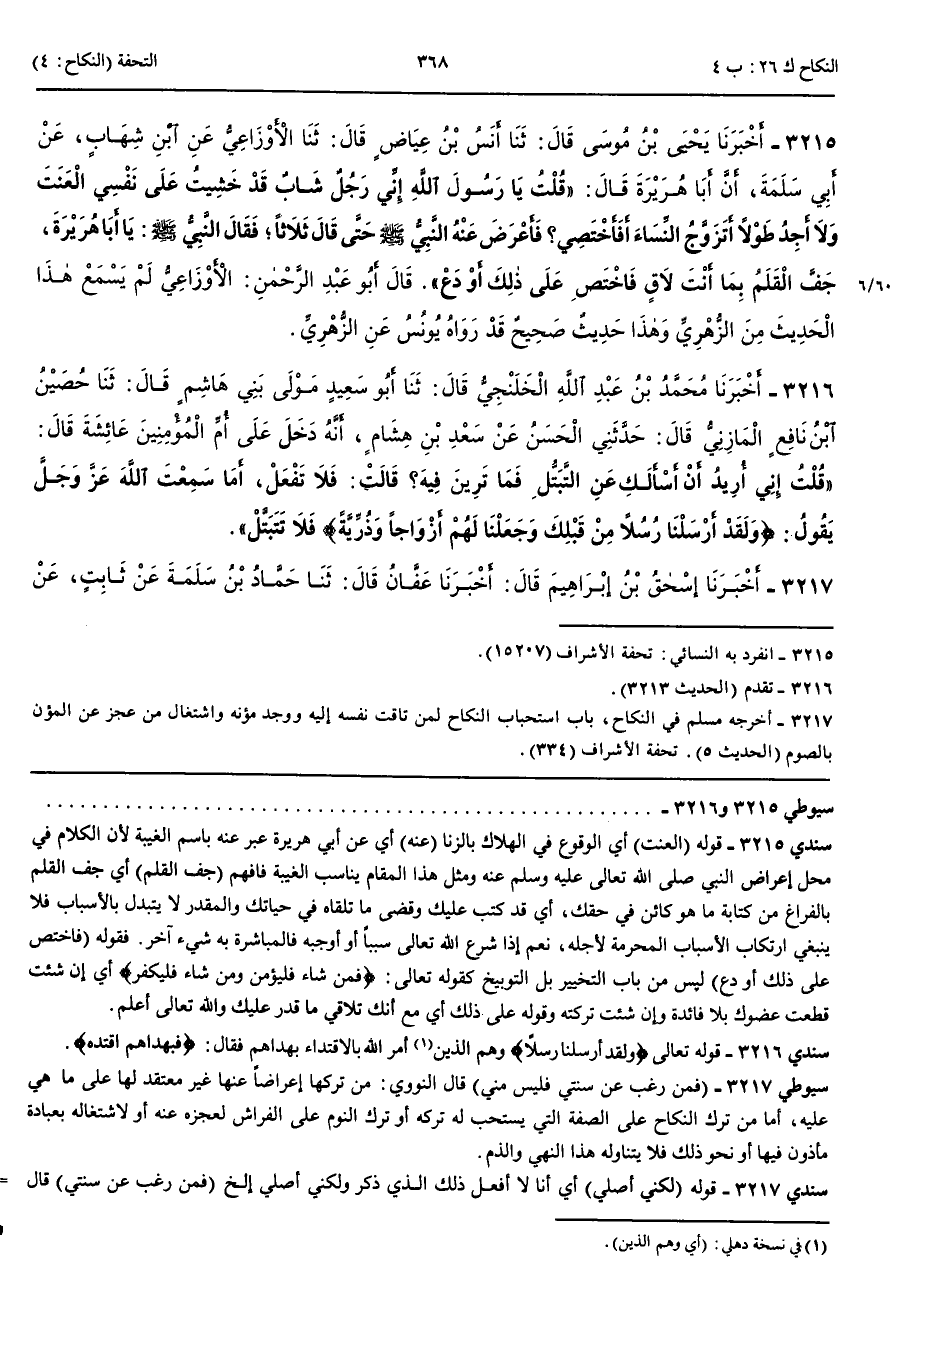 النكاح ك ٢٦: ب ٤ ٣٦٨ التحفة (النكاح: ٤)
٣٢١٥ ـ أَخْبَرَنَا يَحْيَى بْنُ مُوسَى قَالَ: ثَنَا أَنَسُ بْنُ عِيَاضٍ قَالَ: ثَنَا الْأَوْزَاعِيُّ عَنِ ٱبْنِ شِهَابٍ، عَنْ
أَبِي سَلَمَةَ، أَنَّ أَبَا هُرَيْرَةَ قَالَ: «قُلْتُ يَا رَسُولَ اللَّهِ إِنِّي رَجُلٌ شَابٌ قَدْ خَشِيتُ عَلَى نَفْسِي الْعَنَتَ
وَلَا أَجِدُ طَوْلًا أَتَزَوَّجُ النِّسَاءَ أَفَأَخْتَصِي؟ فَأَعْرَضَ عَنْهُ النَّبِيُّ ﷺ حَتَّى قَالَ ثَلَاثاً؛ فَقَالَ النَّبِيُّ ﷺ: يَا أَبَا هُرَيْرَةَ،
٦/٦٠ جَفَّ الْقَلَمُ بِمَا أَنْتَ لَاقٍ فَاخْتَصِ عَلَى ذٰلِكَ أَوْ دَعْ». قَالَ أَبُو عَبْدِ الرَّحْمٰنِ: الْأَوْزَاعِيُّ لَمْ يَسْمَعْ هٰذَا
الْحَدِيثَ مِنَ الزُّهْرِيِّ وَهٰذَا حَدِيثٌ صَحِيحٌ قَدْ رَوَاهُ يُونُسُ عَنِ الزُّهْرِيِّ.
٣٢١٦ ـ أَخْبَرَنَا مُحَمَّدُ بْنُ عَبْدِ ٱللَّهِ الْخَلَنْجِيُّ قَالَ: ثَنَا أَبُو سَعِيدٍ مَوْلَى بَنِي هَاشِمٍ قَالَ: ثَنَا حُصَيْنُ
ٱبْنُ نَافِعٍ الْمَازِنِيُّ قَالَ: حَدَّثَنِي الْحَسَنُ عَنْ سَعْدِ بْنِ هِشَامٍ، أَنَّهُ دَخَلَ عَلَى أُمِّ الْمُؤْمِنِينَ عَائِشَةَ قَالَ:
«قُلْتُ إِنِّي أُرِيدُ أَنْ أَسْأَلَكِ عَنِ التَّبَتُّلِ فَمَا تَرَيِنَ فِيهِ؟ قَالَتْ: فَلَا تَفْعَلْ، أَمَا سَمِعْتَ ٱللَّهَ عَزَّ وَجَلَّ
يَقُولُ: ﴿وَلَقَدْ أَرْسَلْنَا رُسُلًا مِنْ قَبْلِكَ وَجَعَلْنَا لَهُمْ أَزْوَاجاً وَذُرِّيَّةً﴾ فَلَا تَتَبَتَّلْ».
٣٢١٧ ـ أَخْبَرَنَا إِسْحٰقُ بْنُ إِبْرَاهِيمَ قَالَ: أَخْبَرَنَا عَفَّانُ قَالَ: ثَنَا حَمَّادُ بْنُ سَلَمَةَ عَنْ ثَابِتٍ، عَنْ
٣٢١٥ ـ انفرد به النسائي: تحفة الأشراف (١٥٢٠٧).
٣٢١٦ ـ تقدم (الحديث ٣٢١٣).
٣٢١٧ ـ أخرجه مسلم في النكاح، باب استحباب النكاح لمن تاقت نفسه إليه ووجد مؤنه واشتغال من عجز عن المؤن
بالصوم (الحديث ٥). تحفة الأشراف (٣٣٤).
سيوطي ٣٢١٥ و٣٢١٦ ـ ............................................................
سندي ٣٢١٥ ـ قوله (العنت) أي الوقوع في الهلاك بالزنا (عنه) أي عن أبي هريرة عبر عنه باسم الغيبة لأن الكلام في
محل إعراض النبي صلى الله تعالى عليه وسلم عنه ومثل هذا المقام يناسب الغيبة فافهم (جف القلم) أي جف القلم
بالفراغ من كتابة ما هو كائن في حقك، أي قد كتب عليك وقضى ما تلقاه في حياتك والمقدر لا يتبدل بالأسباب فلا
ينبغي ارتكاب الأسباب المحرمة لأجله، نعم إذا شرع الله تعالى سبباً أو أوجبه فالمباشرة به شيء آخر. فقوله (فاختص
على ذلك أو دع) ليس من باب التخيير بل التوبيخ كقوله تعالى: ﴿فمن شاء فليؤمن ومن شاء فليكفر﴾ أي إن شئت
قطعت عضوك بلا فائدة وإن شئت تركته وقوله على ذلك أي مع أنك تلاقي ما قدر عليك والله تعالى أعلم.
سندي ٣٢١٦ ـ قوله تعالى ﴿ولقد أرسلنا رسلًا﴾ وهم الذين(١) أمر الله بالاقتداء بهداهم فقال: ﴿فبهداهم اقتده﴾.
سيوطي ٣٢١٧ ـ (فمن رغب عن سنتي فليس مني) قال النووي: من تركها إعراضاً عنها غير معتقد لها على ما هي
عليه، أما من ترك النكاح على الصفة التي يستحب له تركه أو ترك النوم على الفراش لعجزه عنه أو لاشتغاله بعبادة
مأذون فيها أو نحو ذلك فلا يتناوله هذا النهي والذم.
سندي ٣٢١٧ ـ قوله (لكني أصلي) أي أنا لا أفعل ذلك الذي ذكر ولكني أصلي إلخ (فمن رغب عن سنتي) قال =
(١) في نسخة دهلي: (أي وهم الذين).